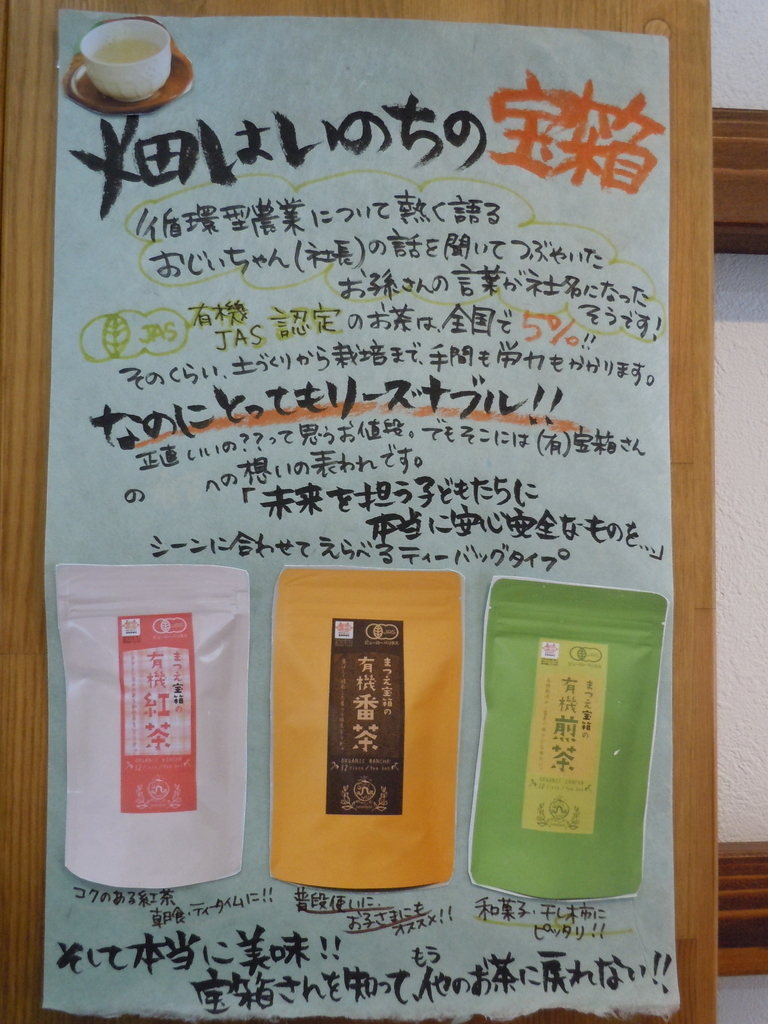 畑はいのちの宝箱
循環型農業について熱く語る
おじいちゃん(社長)の話を聞いてつぶやいた
お孫さんの言葉が社名になった
そうです!
JAS
有機
JAS 認定のお茶は、全国で5%!!
そのくらい、土づくりから栽培まで、手間も労力もかかります。
なのにとってもリーズナブル!!
正直いいの??って思うお値段。でもそこには(有)宝箱さん
の への想いの表われです。
「未来を担う子どもたらに
本当に安心安全なものを…」
シーンに合わせてえらべるティーバッグタイプ
まつえ宝箱の
有機紅茶
まつえ宝箱の
有機番茶
ORGANIC BANCHA
まつえ宝箱の
有機煎茶
コクのある紅茶
朝食・ティータイムに!!
普段使いに、
お子さまにも
オススメ!!
和菓子・干し柿に
ピッタリ!!
そして本当に美味!!
宝箱さんを知って、もう他のお茶に戻れない!!